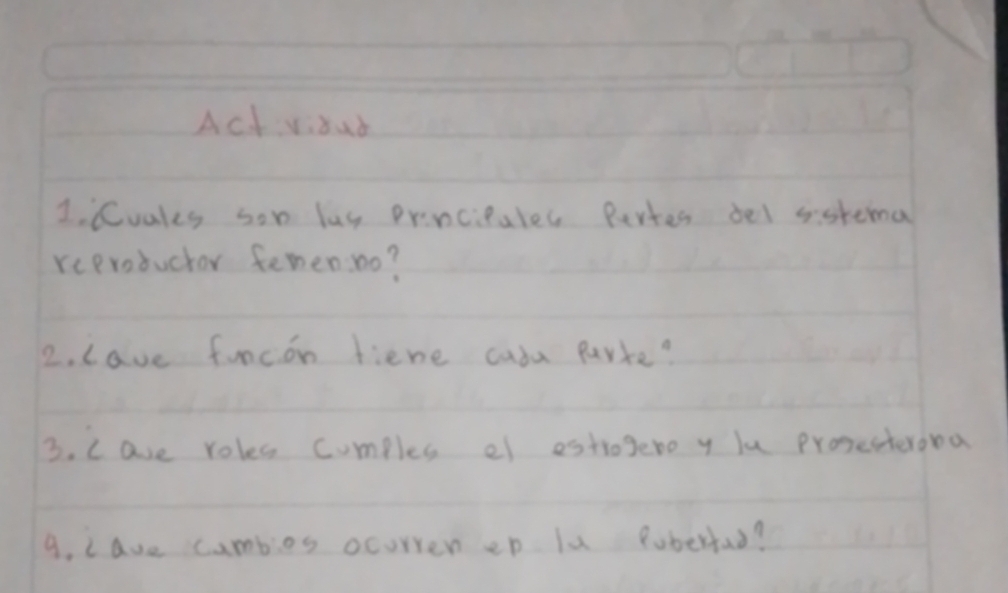 Actividad
1. ¿Cuales son las Principales Partes del sistema
reproductor femenino?
2. ¿Que funcón tiene cada Parte?
3. ¿Que roles Cumples el estrogeno y la Progesterona
4. ¿Que cambios ocurren en la Pubertad?